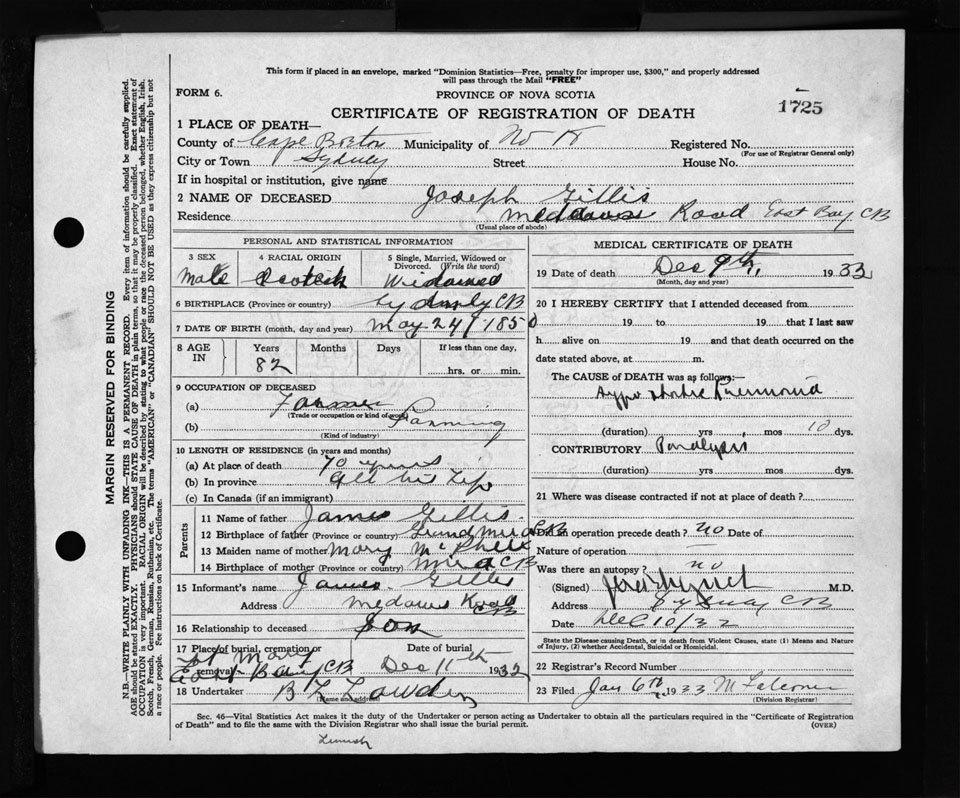 This form if placed in an envelope, marked "Dominion Statistics—Free, penalty for improper use, $300," and properly addressed
will pass through the Mail "FREE"
FORM 6.
PROVINCE OF NOVA SCOTIA
1725
CERTIFICATE OF REGISTRATION OF DEATH
1 PLACE OF DEATH—
County of Cape Breton Municipality of Registered No.
(For use of Registrar General only)
City or Town Sydney Street House No.
If in hospital or institution, give name
2 NAME OF DECEASED Joseph Gillis
Residence Road East Bay CB
(Usual place of abode)
PERSONAL AND STATISTICAL INFORMATION
3 SEX 4 RACIAL ORIGIN 5 Single, Married, Widowed or
Divorced. (Write the word)
Male Scotch Widowed
6 BIRTHPLACE (Province or country) CB
7 DATE OF BIRTH (month, day and year) May 24/1850
8 AGE IN Years Months Days If less than one day,
82 hrs. or min.
9 OCCUPATION OF DECEASED
(a) Farmer
(Trade or occupation or kind of work)
(b) Farming
(Kind of industry)
10 LENGTH OF RESIDENCE (in years and months)
(a) At place of death 70 years
(b) In province All his Life
(c) In Canada (if an immigrant)
Parents
11 Name of father James Gillis
12 Birthplace of father (Province or country) Grand Mira CB
13 Maiden name of mother Mary McPhee
14 Birthplace of mother (Province or country) Mira CB
15 Informant's name James Gillis
Address Road
CB
16 Relationship to deceased Son
17 Place of burial, cremation or removal Date of burial
St Marys
East Bay CB Dec 11th 1932
18 Undertaker B L Lowden
(Name and address)
MEDICAL CERTIFICATE OF DEATH
19 Date of death Dec 9th, 1932
(Month, day and year)
20 I HEREBY CERTIFY that I attended deceased from
19 to 19 that I last saw
h alive on 19 and that death occurred on the
date stated above, at m.
The CAUSE of DEATH was as follows:—
Hypostatic Pneumonia
(duration) yrs mos 10 dys.
CONTRIBUTORY Paralysis
(duration) yrs mos dys.
21 Where was disease contracted if not at place of death?
Did an operation precede death? no Date of
Nature of operation
Was there an autopsy? no
(Signed) M.D.
Address Sydney CB
Date Dec 10/32
State the Disease causing Death, or in death from Violent Causes, state (1) Means and Nature
of Injury, (2) whether Accidental, Suicidal or Homicidal.
22 Registrar's Record Number
23 Filed Jan 6th 1933 M Falconer
(Division Registrar)
Sec. 46—Vital Statistics Act makes it the duty of the Undertaker or person acting as Undertaker to obtain all the particulars required in the "Certificate of Registration
of Death" and to file the same with the Division Registrar who shall issue the burial permit.
(OVER)
MARGIN RESERVED FOR BINDING
N.B.—WRITE PLAINLY WITH UNFADING INK—THIS IS A PERMANENT RECORD. Every item of information should be carefully supplied.
AGE should be stated EXACTLY. PHYSICIANS should STATE CAUSE OF DEATH in plain terms, so that it may be properly classified. Exact statement of
OCCUPATION is very important. RACIAL ORIGIN will be described by stating to what people or race a deceased person belonged, whether English, Irish,
Scotch, French, German, Russian, Ruthenian, etc. The terms "AMERICAN" or "CANADIAN" SHOULD NOT BE USED as they express citizenship but not
a race or people. Fee instructions on back of Certificate.